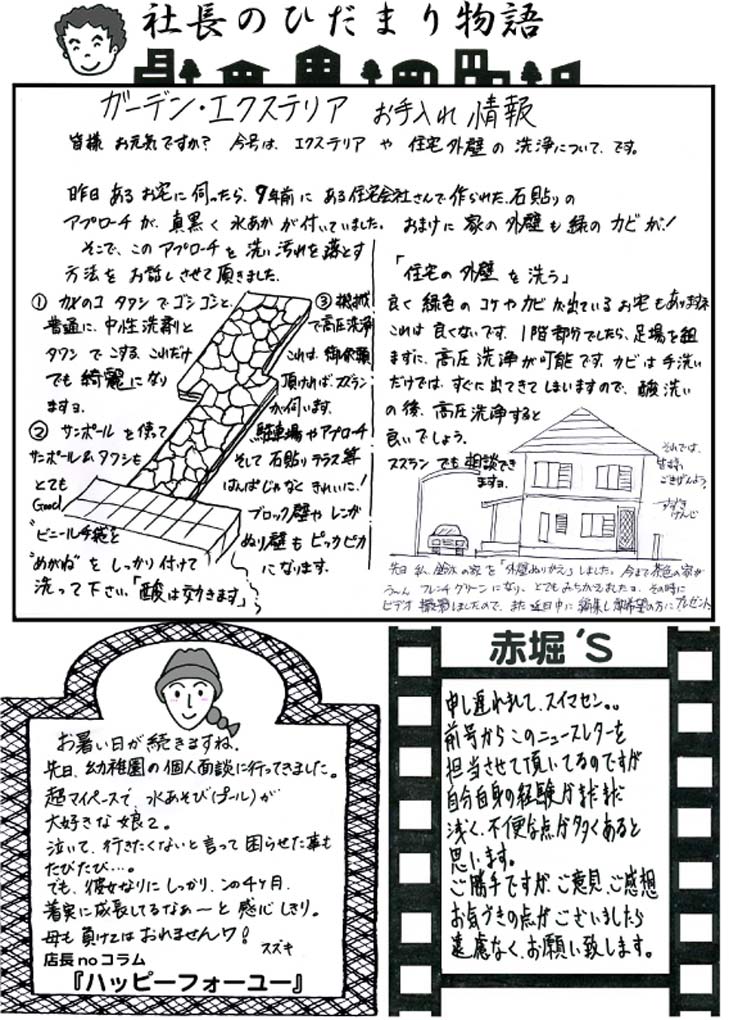 社長のひだまり物語
ガーデン・エクステリア お手入れ情報
皆様 お元気ですか? 今号は、エクステリア や 住宅外壁の洗浄について、です。
昨日 ある お宅に 伺ったら、9年前に ある住宅会社さんで作られた、石貼りの
アプローチが、真黒く 水あかが付いていました。 おまけに 家の外壁も緑のカビが!
そこで、この アプローチを 洗い汚れを落とす
方法を お話しさせて頂きました。
① カメのコ タワシ で ゴシゴシと、
普通に、中性洗剤と
タワシ で こする。これだけ
でも 綺麗に なり
ますヨ。
② サンポール を 使って
サンポール&タワシも
とても
Good
"ビニール手袋"と
"めがね" を しっかり付けて
洗って下さい。「酸は効きます」
③ 機械
で高圧洗浄
これは、御依頼
頂ければ、スズラン
が伺います。
駐車場やアプローチ
そして 石貼りテラス等
はんぱじゃなく きれいに!
ブロック壁や レンガ
ぬり壁も ピッカピカ
になります。
「住宅の外壁 を 洗う」
良く 緑色の コケやカビが出ているお宅もあります
これは 良くないです。1階部分でしたら、足場を組
まずに、高圧洗浄が可能です。カビは手洗い
だけでは、すぐに出てきてしまいますので、酸洗い
の後、高圧洗浄すると
良いでしょう。
スズラン でも 相談でき
ますヨ。
それでは、
皆様
ごきげんよう。
すずき
けんじ
先日 私、鈴木の家を「外壁ぬりかえ」しました。今まで茶色の家が
う〜ん フレンチグリーンになり、とても みちがえましたヨ。その時に
ビデオ撮影しましたので、また近日中に 編集し御希望の方にプレゼント
お暑い日が続きますね。
先日、幼稚園の個人面談に行ってきました。
超マイペースで、水あそび(プール)が
大好きな娘2。
泣いて、行きたくないと言って困らせた事も
たびたび…。
でも、彼女なりにしっかり、この4ヶ月、
着実に成長してるなぁーと感じしきり。
母も負けてはおれませんワ!
スズキ
店長noコラム
『ハッピーフォーユー』
赤堀'S
申し遅れまして、スイマセン。。
前号からこのニュースレターを
担当させて頂いてるのですが
自分自身の経験がまだまだ
浅く、不便な点が多くあると
思います。
ご勝手ですが、ご意見、ご感想
お気づきの点がございましたら
遠慮なく、お願い致します。